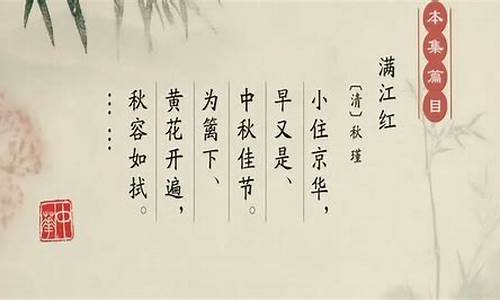 本集篇目
满江红
〔清〕秋瑾
小住京华，
早又是、
中秋佳节。
为篱下、
黄花开遍，
秋容如拭。
……